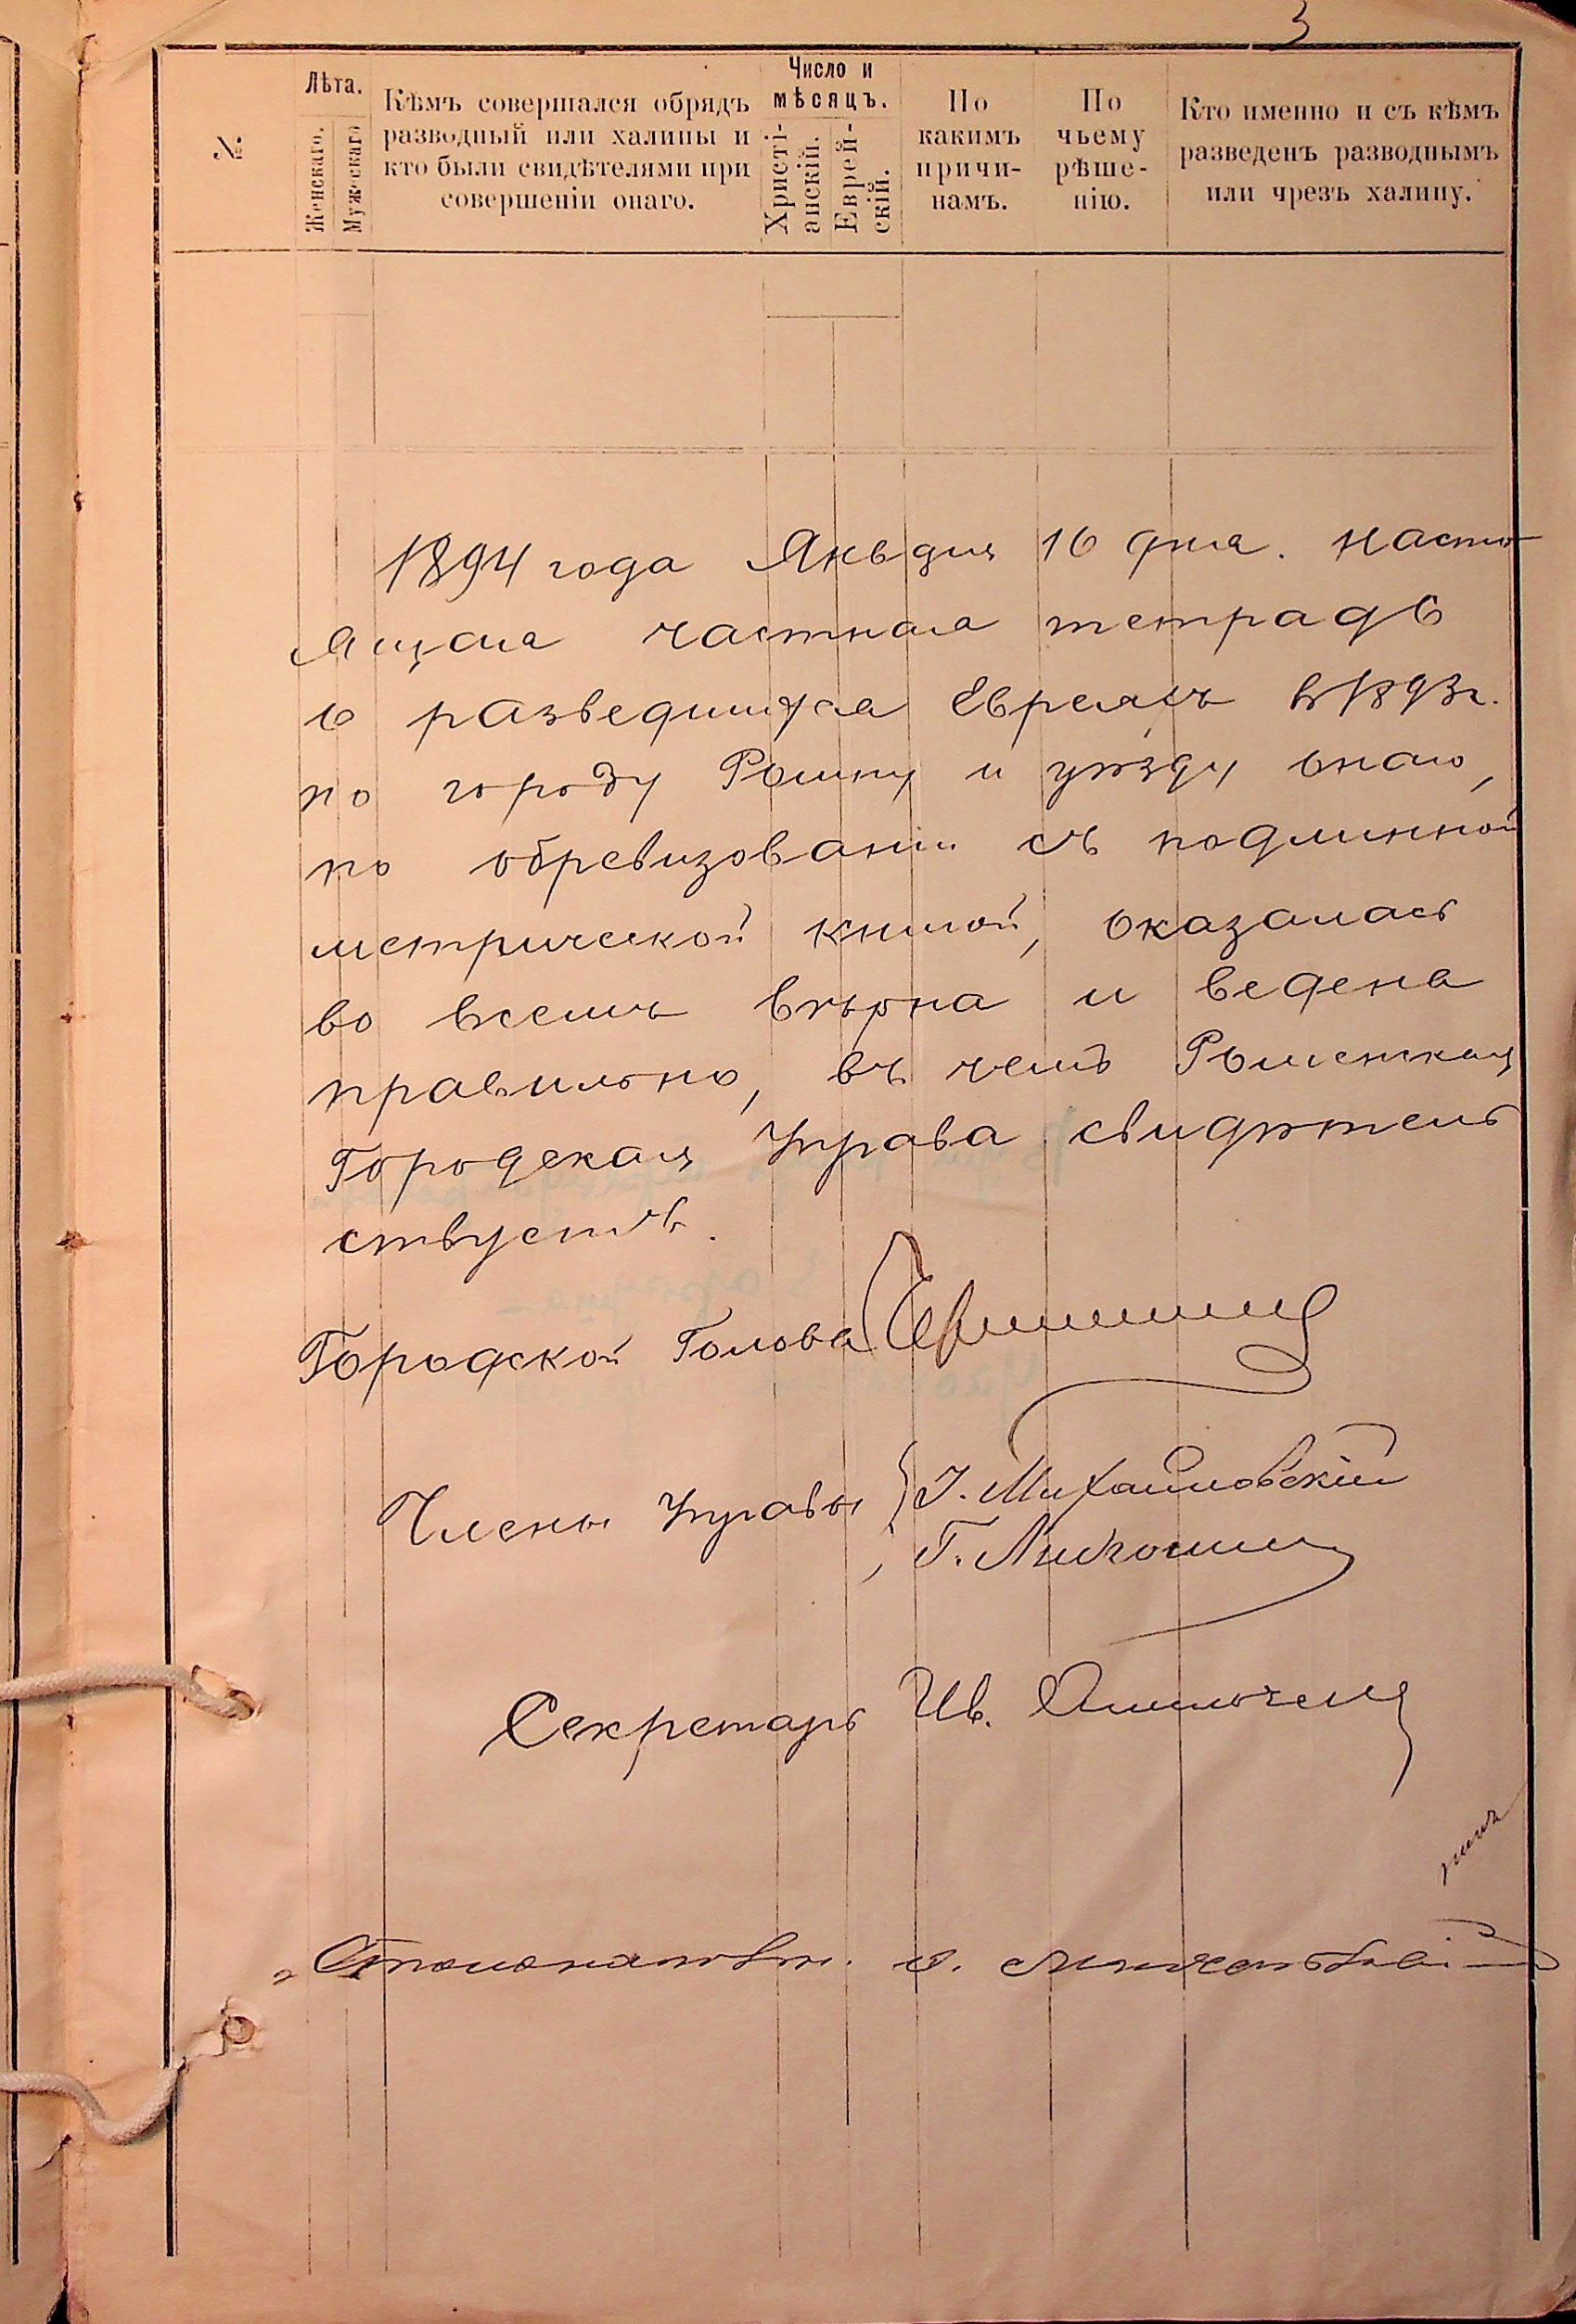 3
№
Лѣта.
Женскаго.
Мужескаго
Кѣмъ совершался обрядъ
разводный или халицы и
кто были свидѣтелями при
совершеніи онаго.
Число и
мѣсяцъ.
Христі-
анскій.
Еврей-
скій.
По
какимъ
причи-
намъ.
По
чьему
рѣше-
нію.
Кто именно и съ кѣмъ
разведенъ разводнымъ
или чрезъ халицу.
1894 года Января 16 дня. Насто-
ящая частная тетрадь
о разведшихся Евреяхъ в 1893 г.
по городу Ромну и уѣзду онаго,
по обревизованіи съ подлинной
метрической книгой, оказалась
во всемъ вѣрна и ведена
правильно, въ чемъ Роменская
Городская Управа свидѣтель
ствуетъ.
Городской Голова
Члены Управы И. Михайловскій
Г.
Секретарь Ив.